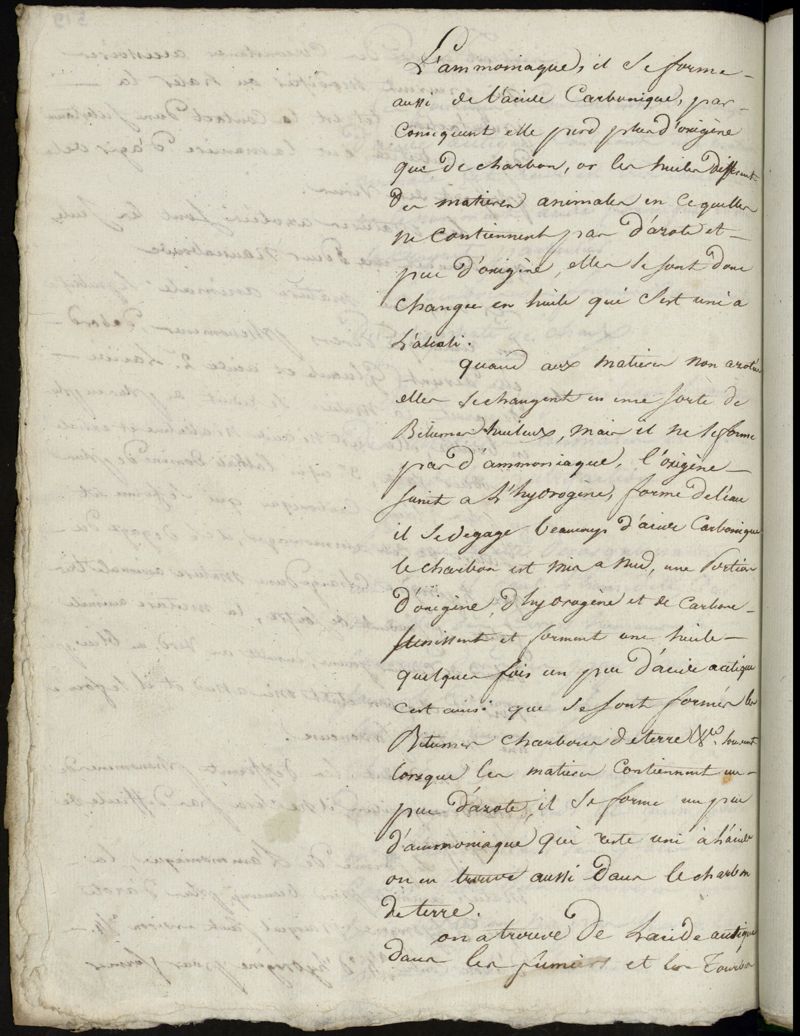 L'ammoniaque, il se forme
aussi de l'acide Carbonique, par
Consequent elle perd plus d'origène
que de charbon, or les huiles different
des matieres animales en ce quelles
ne contiennent pas d'azote et
peu d'origène, elles se sont donc
changée en huile qui s'est uni a
l'alcali.
quand aux matieres non azotées
elles se changent en une sorte de
Bitumes huileux, mais il ne se forme
pas d'ammoniaque, l'origène
sunit a l'hydrogène, forme de l'eau
il se degage beaucoup d'acide Carbonique
le charbon est mis a nud, une Portion
d'origène, d'hydrogène et de Carbone
sunissent et forment une huile
quelques fois un peu d'acide acetique
cest ainsi que se sont formés les
Bitumes charbons de terre &ca. souvent
lorsque les matieres contiennent un
peu d'azote, il se forme un peu
d'ammoniaque qui reste uni à l'huile
on en trouve aussi dans le charbon
de terre.
on a trouvé de l'acide acetique
dans les fumiers et les Tourbes